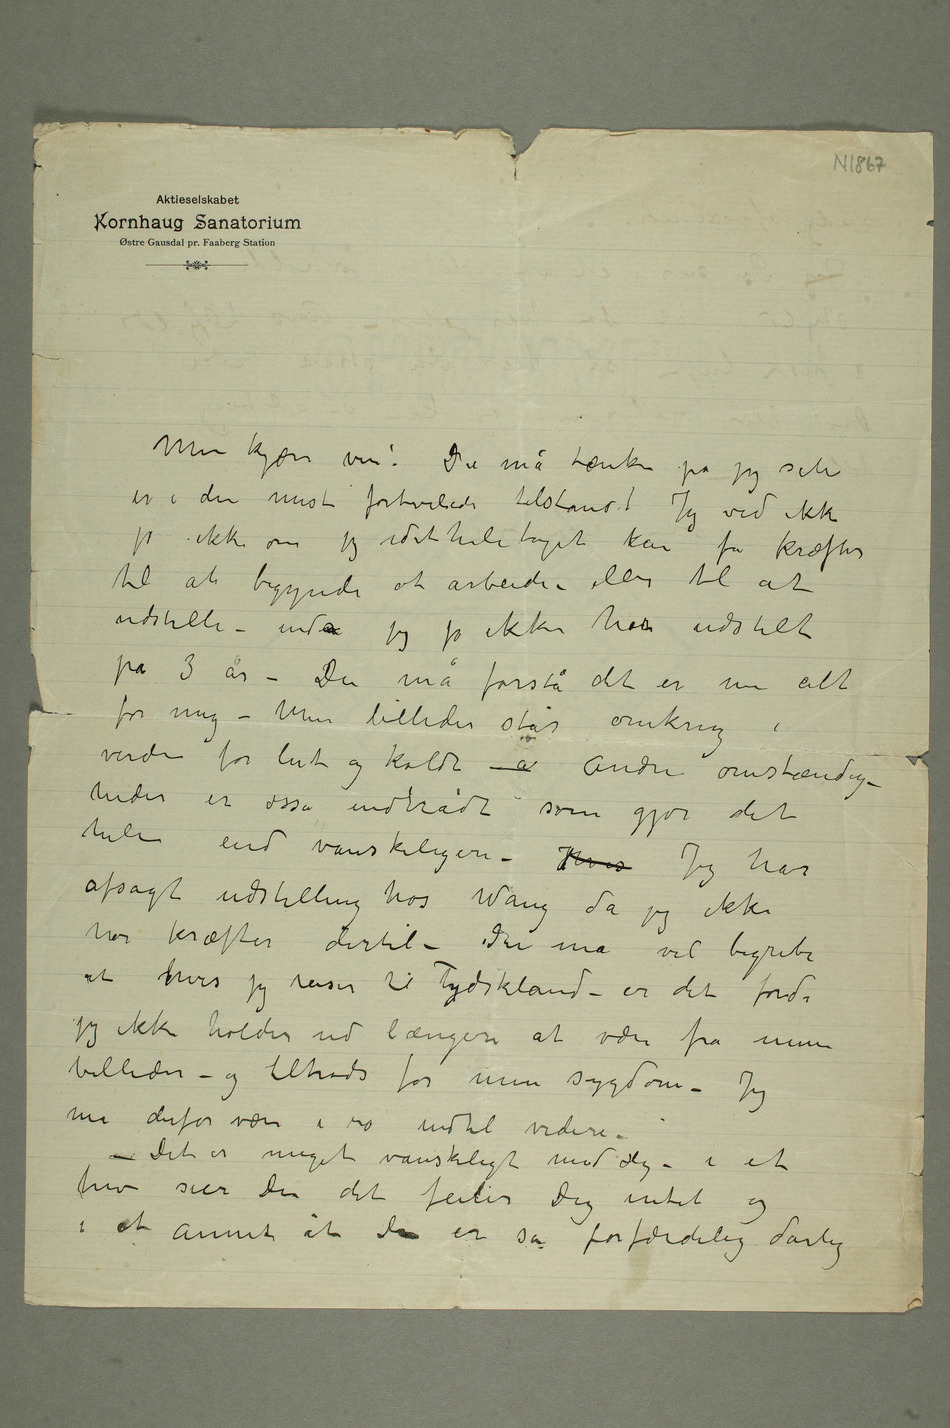 N1867
Aktieselskabet
Kornhaug Sanatorium
Østre Gausdal pr. Faaberg Station
Min kjære ven! Du må tænke på jeg selv
er i den mest fortvilede tilstand! Jeg ved ikke
jo ikke om jeg idethele taget kan få kræfter
til at begynde at arbeide eller til at
udstille – jeg jo ikke har udstilt
på 3 år – Du må forstå det er nu alt
for mig – Mine billeder står omkring i
verden for lut og koldt – a Andre omstændig-
heder er osså indtrådt som gjør det
hele end vanskeligere – Hvis Jeg har
afsagt udstilling hos Wang da jeg ikke
har kræfter dertil – Du må vel begribe
at hvis jeg reiser til Tydskland – er det fordi
jeg ikke holder ud længere at være fra mine
billeder – og tiltrods for min sygdom – Jeg
må derfor være i ro indtil videre –
– Det er meget vanskeligt med Dig – i et
brev sier Du det feiler Dig intet og
i et annet åt Du er så forfærdelig dårlig